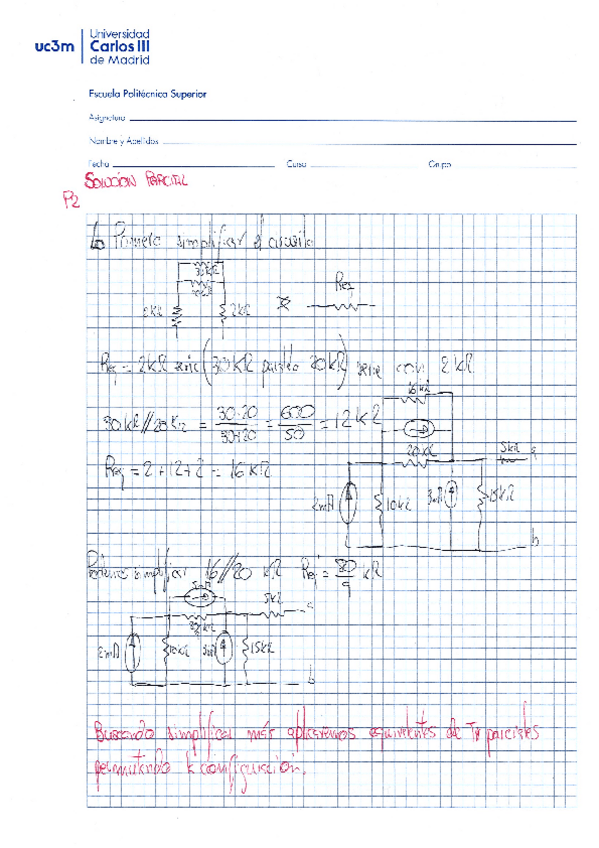 uc3m
Universidad
Carlos III
de Madrid
Escuela Politécnica Superior
Asignatura
Nombre y Apellidos
Fecha
Curso
Grupo
SOLUCIÓN PARCIAL
P2
Primero simplificar el circuito
30kΩ
20kΩ
2kΩ
2kΩ
Req
Req = 2kΩ serie (30kΩ paralelo 20kΩ) serie con 2kΩ
30kΩ//20kΩ = 30·20/30+20 = 600/50 = 12kΩ
Req = 2+12+2 = 16kΩ
16kΩ
20kΩ
5kΩ
a
2mA
10kΩ
3mA
15kΩ
b
Podemos simplificar 16//20 kΩ Req' = 80/9 kΩ
5kΩ
a
2mA
10kΩ
15kΩ
b
Buscando simplificar más aplicaremos equivalentes de Th parciales
permutando la configuración.